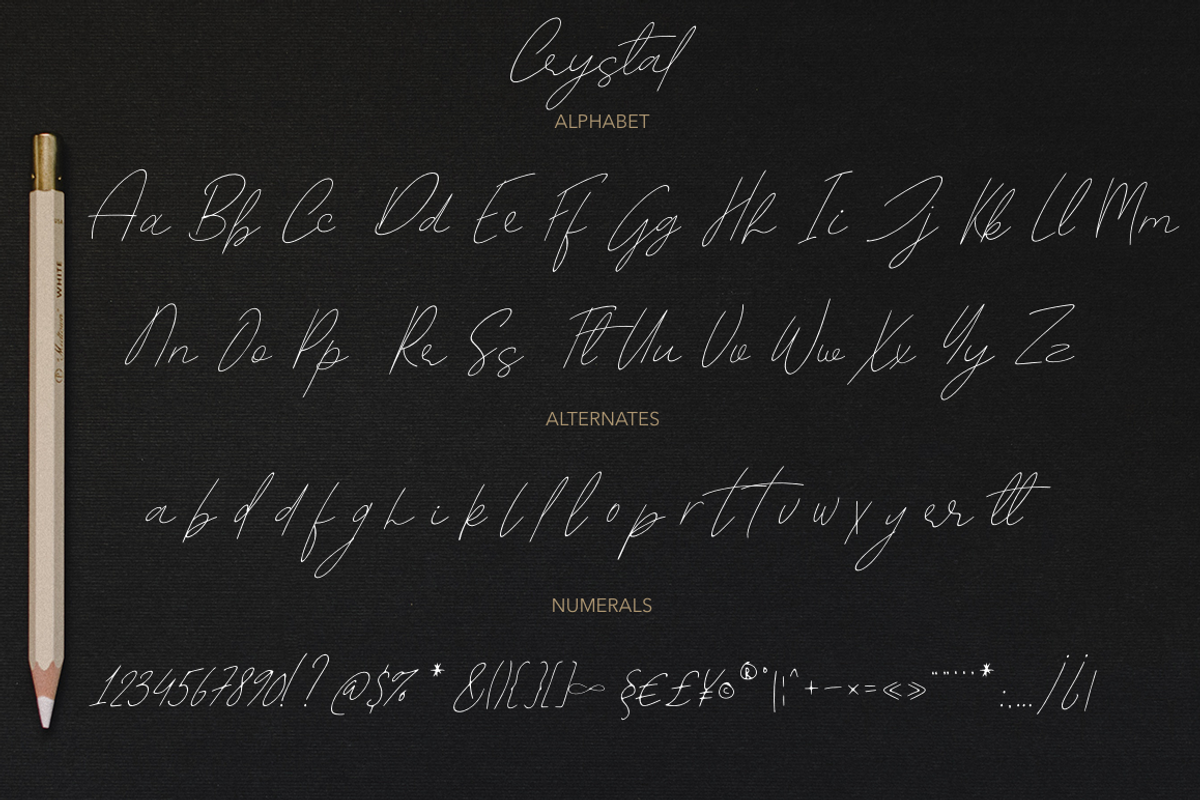 Crystal
ALPHABET
Aa Bb Cc Dd Ee Ff Gg Hh Ii Jj Kk Ll Mm
Nn Oo Pp Rr Ss Tt Uu Vv Ww Xx Yy Zz
ALTERNATES
a b d d f g h i k l l l o p r t t v w x y er r tt
NUMERALS
1234567890!? @$% * &(){}[]∞ §€£¥©®°|¦^+−×=«»"''*:,…/¡¿|
WHITE